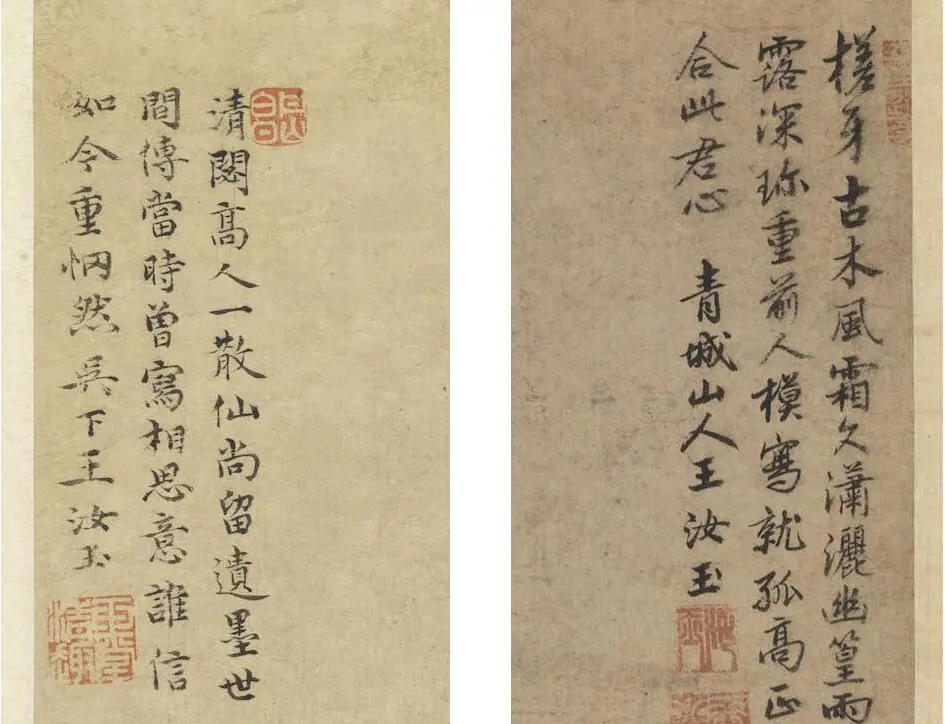 清閟高人一散仙尚留遺墨世
間傳當時曾寫相思意誰信
如今重惘然吳下王汝玉
槎牙古木風霜久瀟灑幽篁雨
露深珍重前人模寫就孤高正
合此君心 青城山人王汝玉